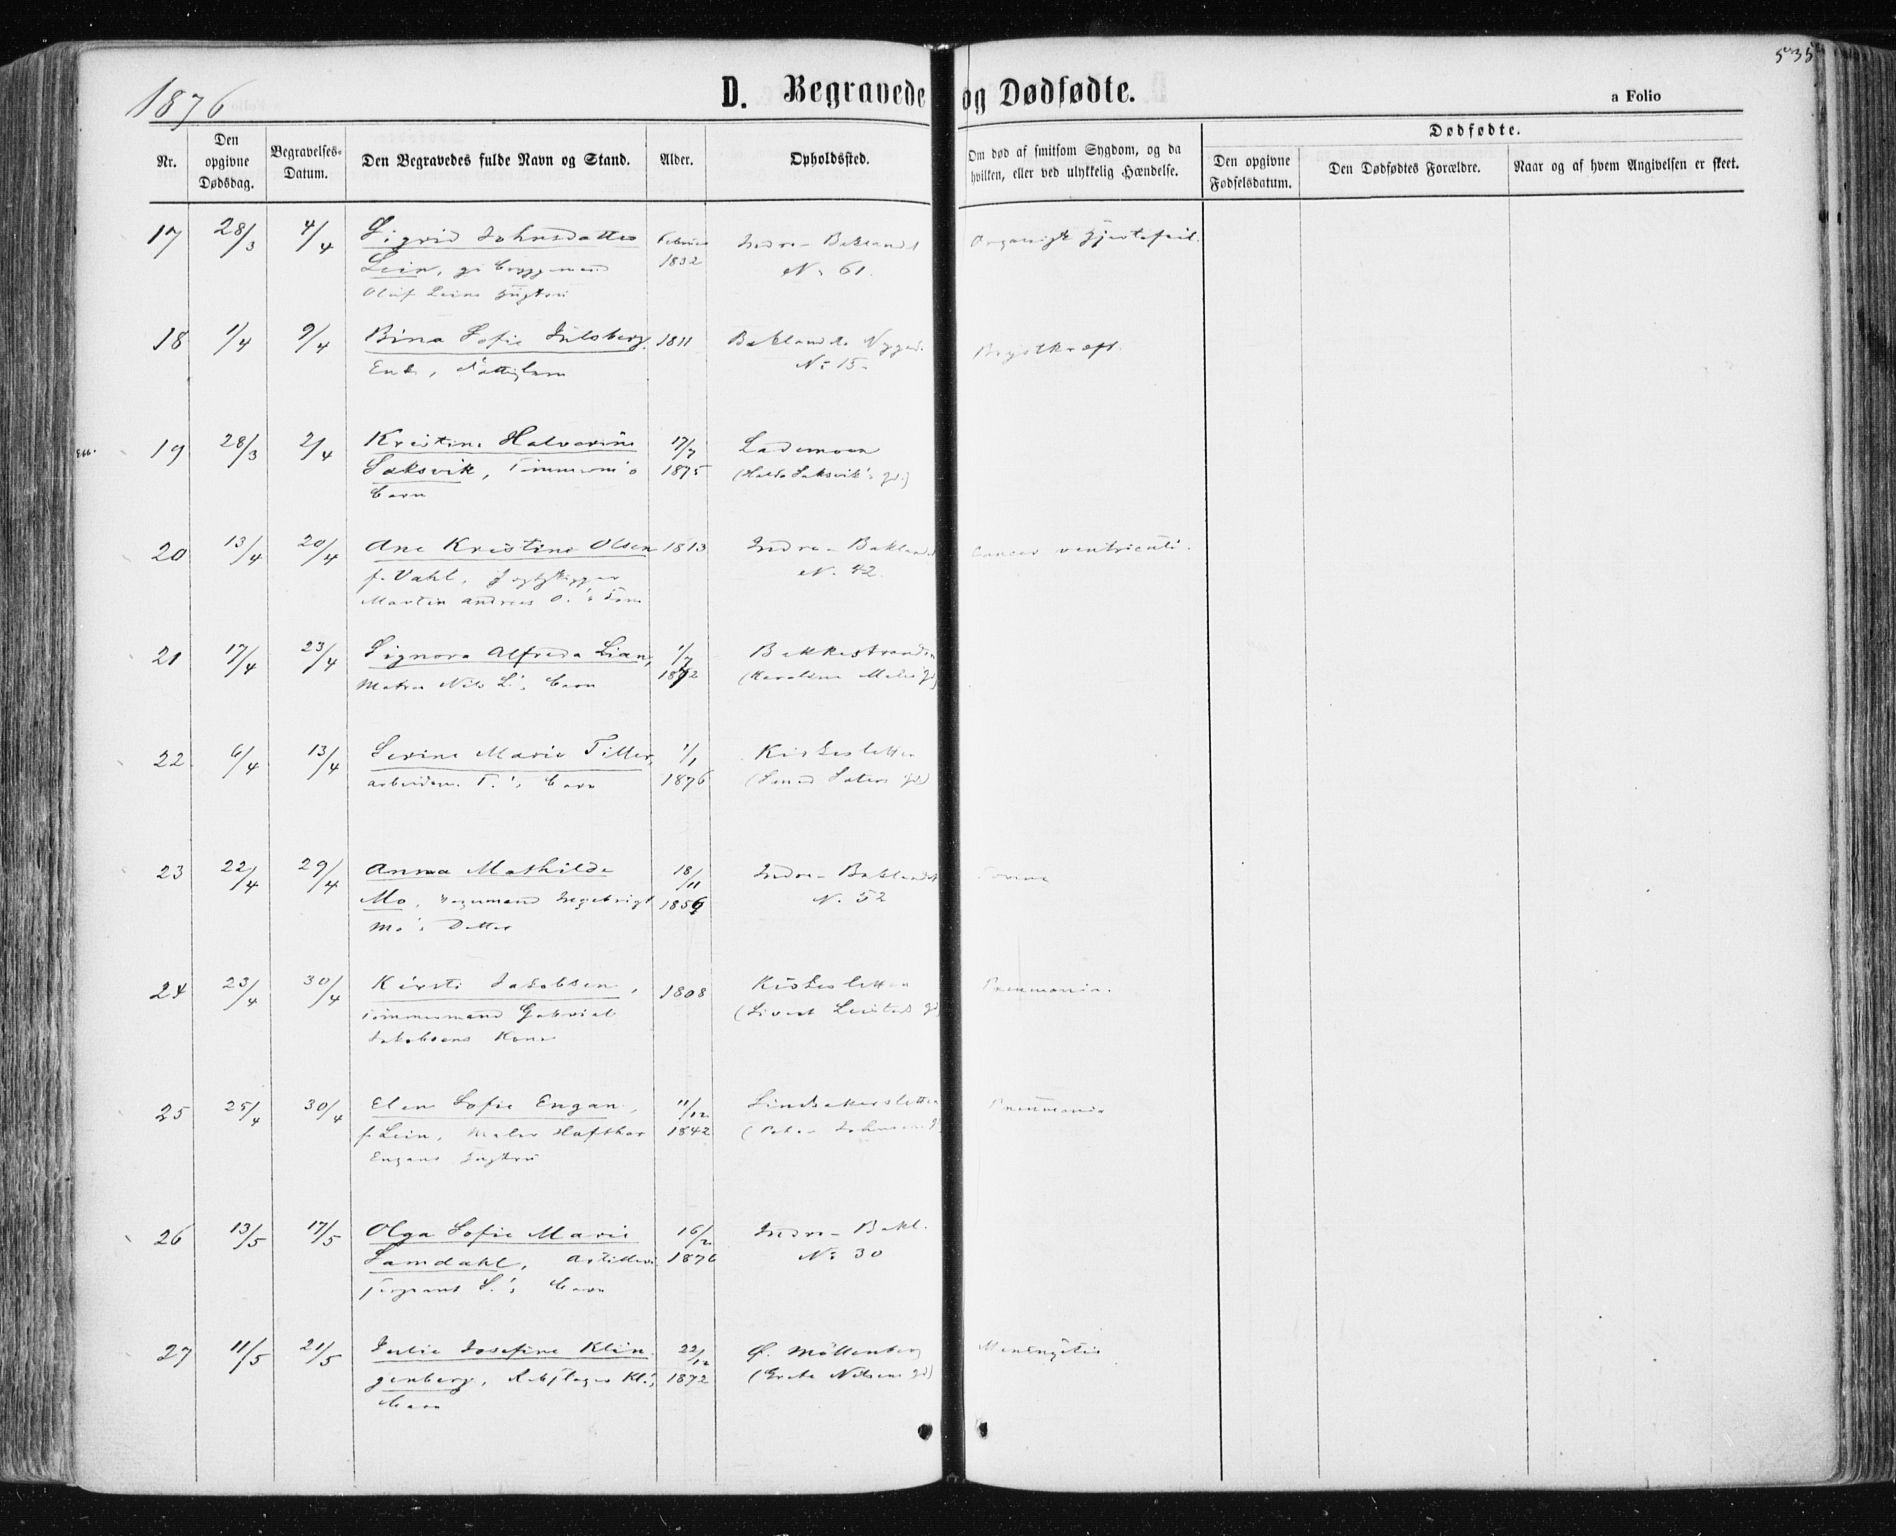 1876
D. Begravede og Dødfødte.
535
a Folio
Nr.
Den opgivne Dødsdag.
Begravelses-Datum.
Den Begravedes fulde Navn og Stand.
Alder.
Opholdssted.
Om død af smitsom Sygdom, og da hvilken, eller ved ulykkelig Hændelse.
Dødfødte.
Den opgivne Fødselsdatum.
Den Dødfødtes Forældre.
Naar og af hvem Angivelsen er skeet.
17 28/3 4/4 Sigrid Johnsdatter Februar Indre-Baklandt Organisk Hjertefeil.
Lein, 1832 N. 61.
Oluf Leins Hustru
18 1/4 9/4 Bina Sofie Julsberg 1811 Baklandts Nygad. Brystkræft.
Enke, Fattiglem N. 15.
19 28/3 2/4 Kristine Halvorine 17/7 Lademoen
Saksvik, Tømmerm's 1875 (Saksvik's gd.)
barn
20 13/4 20/4 Ane Kristine Olsen 1813 Indre-Baklandt Cancer ventriculi.
f. Vahl, Jagtskipper N. 42.
Martin Andreas O.'s
21 17/4 23/4 Signora Alfreda Lian, 1/7 Bakkestranden
Matros Nils L.'s barn 1872 (Karoline gd)
22 6/4 13/4 Serine Marie Tiller, 1/1
arbeidsm. T.'s barn 1876
23 22/4 29/4 Anna Mathilde 18/11 Indre-Baklandt
Mo, Ingebrigt 1856 N. 52
Mo's Datter
24 23/4 30/4 Kirsti Jakobsen, 1808 Pneumonia.
Tømmermand Gabriel (Sivert gd)
Jakobsens Kone
25 25/4 30/4 Elen Sofie Engan, 11/12 Pneumonia
f. Lein, Maler Hafthor 1842 (Peter Johnsens gd
Engans Hustru
26 13/5 17/5 Olga Sofie Marie 16/2 Indre-Bakl.
Samdahl, Artilleri 1876 N. 30
Sergeant S.'s barn
27 11/5 21/5 Julie Josefine Klin- 22/12 Ø. Möllenberg Meningitis
genberg, Rebslager Kl.'s 1872 (Grete Nilsens gd)
barn